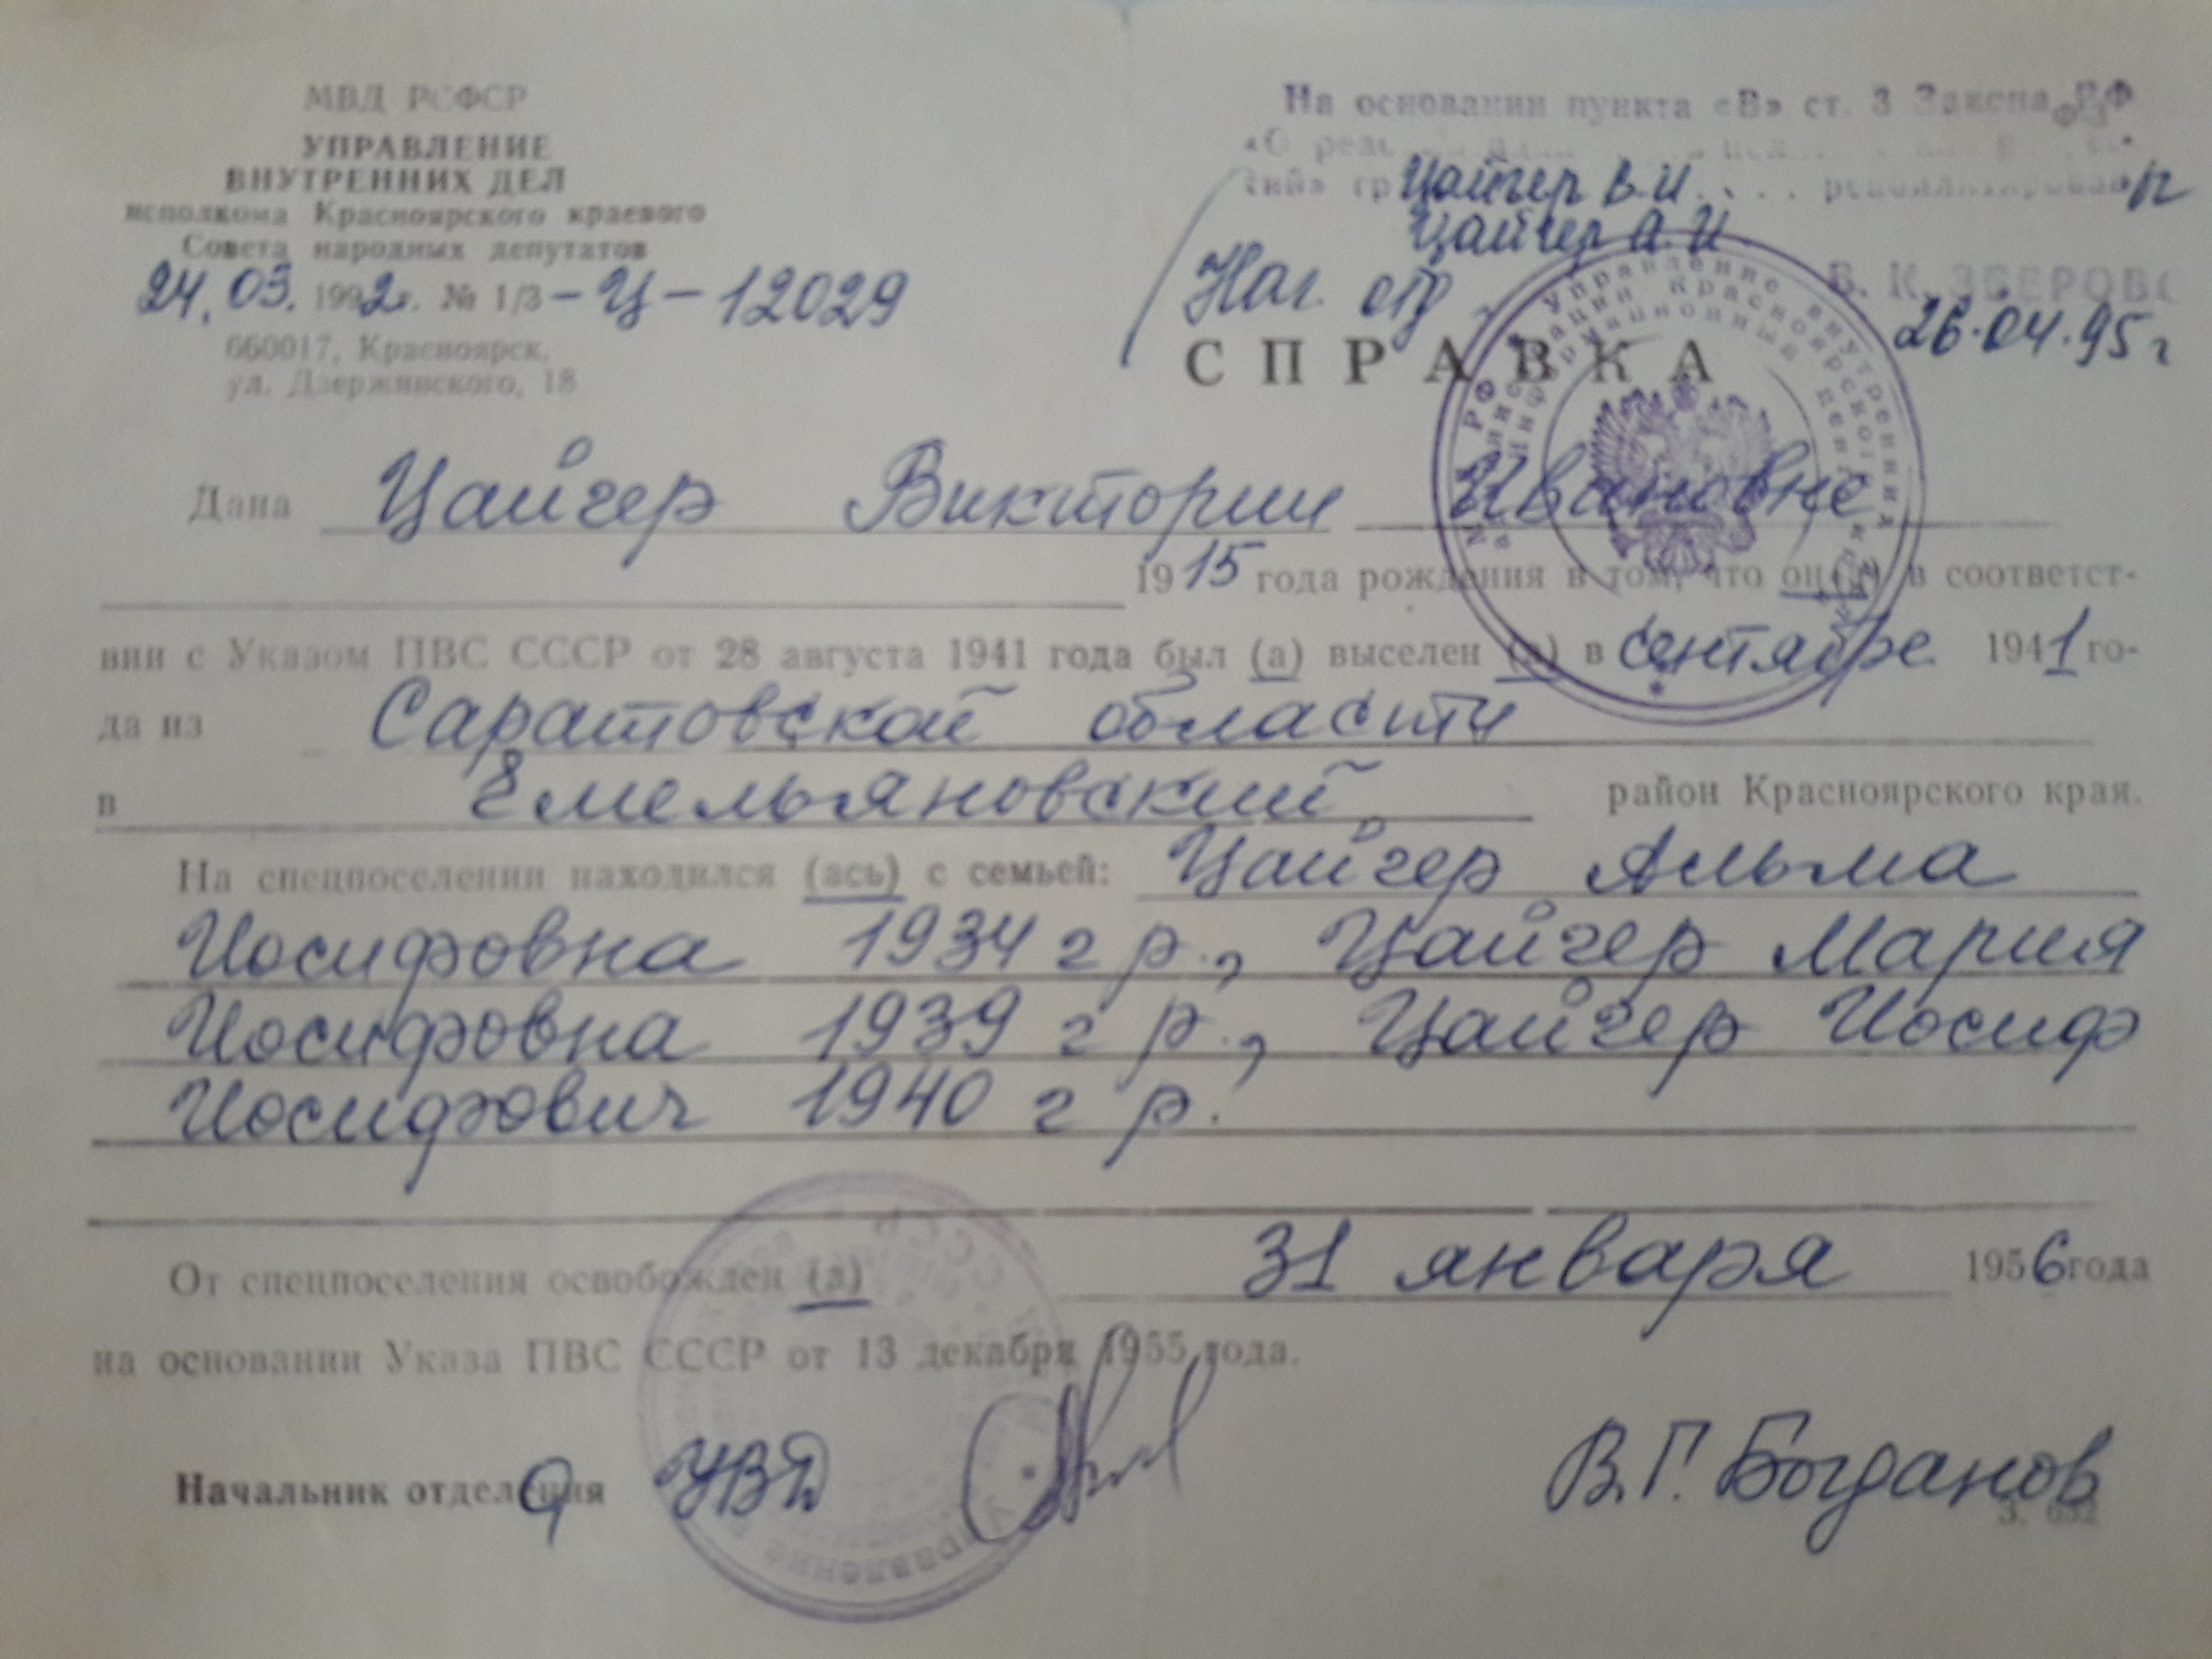 МВД РСФСР
УПРАВЛЕНИЕ
ВНУТРЕННИХ ДЕЛ
исполкома Красноярского краевого
Совета народных депутатов
24.03. 1992 г. № 1/3 - Ц - 12029
660017, Красноярск,
ул. Дзержинского, 18
На основании пункта «В» ст. 3 Закона РФ
«О
сий» гр. Цайгер В.И. реабилитирован
Цайгер А.И.
Нач. отд
В. К. ЗВЕРОВ
26.04.95 г
СПРАВКА
Дана Цайгер Виктории Ивановне
1915 года рождения в том, что он(а) в соответст-
вии с Указом ПВС СССР от 28 августа 1941 года был (а) выселен (а) в сентябре 1941 го-
да из Саратовской области
в Емельяновский район Красноярского края.
На спецпоселении находился (ась) с семьей: Цайгер Альма
Иосифовна 1934 г р., Цайгер Мария
Иосифовна 1939 г р., Цайгер Иосиф
Иосифович 1940 г р.
От спецпоселения освобожден (а) 31 января 1956 года
на основании Указа ПВС СССР от 13 декабря 1955 года.
Начальник отделения УВД В.Г. Богданов
З. 652